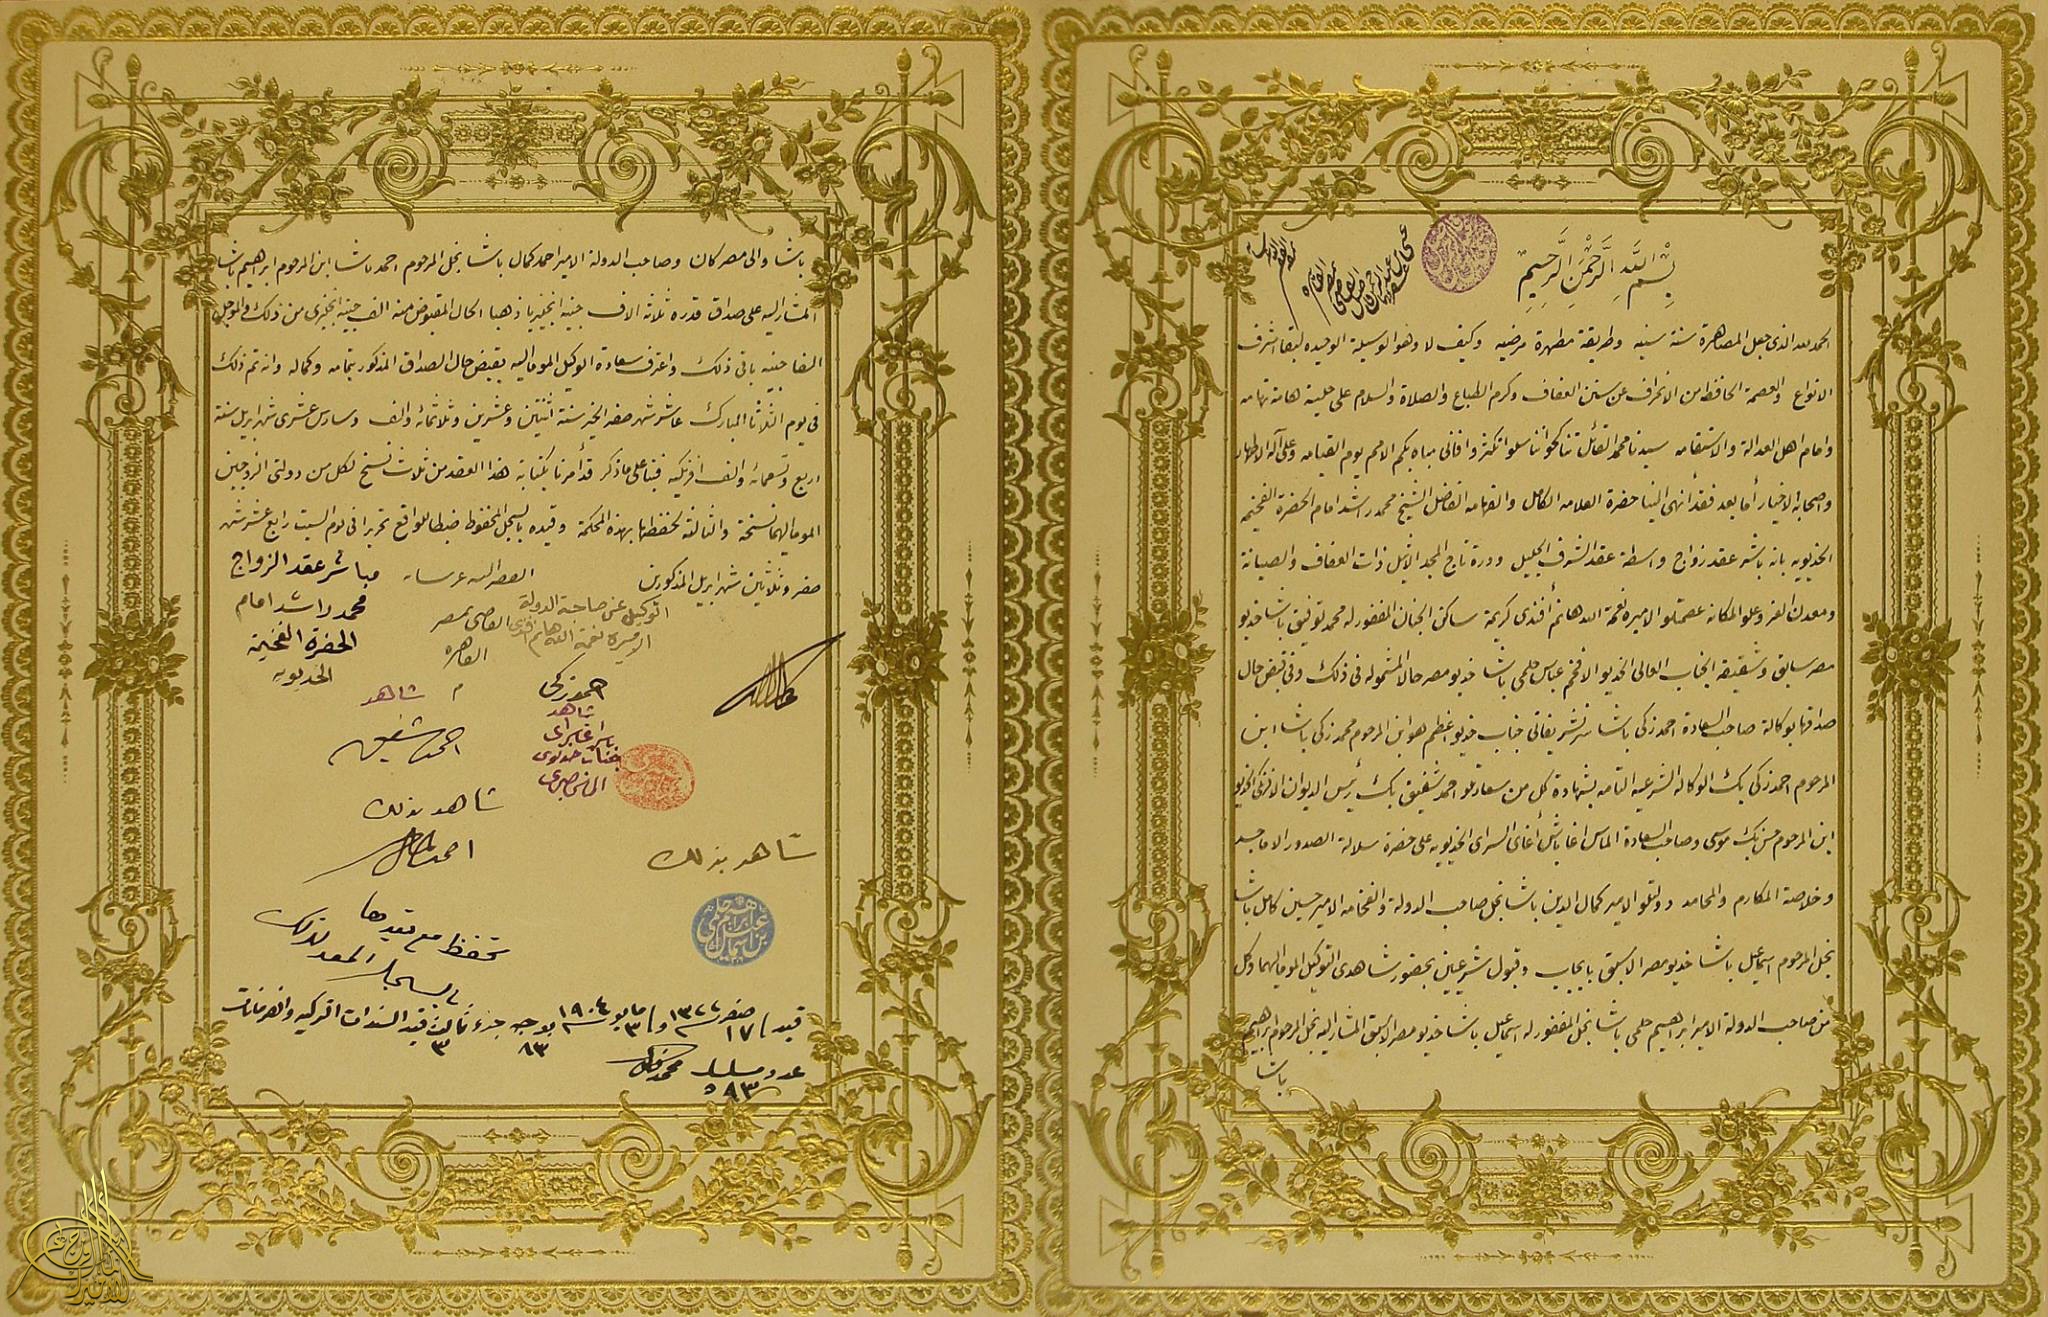 بسم الله الرحمن الرحيم
الحمد لله الذى جعل المصاهرة سنة سنيه وطريقة مطهرة مرضيه وكيف لا وهو الوسيلة الوحيده لبقا اشرف
الانواع والعصمة الحافظه من الانحراف عن سنن العفاف وكرم الطباع والصلاة والسلام على حلية هامة تهامه
وامام اهل العدالة والاستقامه سيدنا محمد القائل تناكحوا تناسلوا تكثروا فانى مباه بكم الامم يوم القيامه وعلى آله الاطهار
واصحابه الاخيار أما بعد فقد أنهى الينا حضرة العلامه الكامل والفهامه الفاضل الشيخ محمد راشد امام الحضرة الفخيمه
الخديويه بانه باشر عقد زواج واسطة عقد الشرف الجليل ودرة تاج المجد الاثيل ذات العفاف والصيانة
ومعدن العز وعلو المكانه عصمتلو الاميره نعمة الله هانم أفندى كريمة ساكن الجنان المغفور له محمد توفيق باشا خديو
مصر سابق وشقيقة الجناب العالى الخديو الافخم عباس حلمى باشا خديو مصر حالا المشموله فى ذلك وفى قبض حال
صداقها بوكالة صاحب السعادة احمد زكى باشا سر تشريفاتى جناب خديو اعظم هو ابن المرحوم محمد زكى باشا ابن
المرحوم احمد زكى بك الوكاله الشرعيه التامه بشهادة كل من سعادتلو احمد شفيق بك رئيس الديوان الافرنكى الخديو
ابن المرحوم حسن بك موسى وصاحب السعادة الماس اغا باش أغاى السراى الخديويه على حضرة سلالة الصدور الاماجد
وخلاصة المكارم والمحامد دولتلو الامير كمال الدين باشا نجل صاحب الدولة والفخامه الامير حسين كامل باشا
نجل المرحوم اسماعيل باشا خديو مصر الاسبق بايجاب وقبول شرعيين بحضور شاهدى التوكيل الموما اليهما وكل
من صاحب الدولة الامير ابراهيم حلمى باشا نجل المغفور له اسماعيل باشا خديو مصر الاسبق المشار اليه نجل المرحوم ابراهيم
باشا
باشا والى مصر كان وصاحب الدولة الامير احمد كمال باشا نجل المرحوم احمد باشا ابن المرحوم ابراهيم باشا
المشار اليه على صداق قدره ثلاثة الاف جنيه انجليزيا ذهبا الحال المقبوض منه الف جنيه انجليزى من ذلك والمؤجل
الفا جنيه باقى ذلك واعترف سعادة الوكيل الموما اليه بقبض حال الصداق المذكور بتمامه وكماله وانه تم ذلك
فى يوم الثلاثا المبارك عاشر شهر صفر الخير سنة اثنتين وعشرين وثلاثمائه والف وسادس عشرى شهر ابريل سنة
اربع وتسعمائه والف افرنكيه فبنا على ما ذكر قد أمرنا بكتابة هذا العقد من ثلاث نسخ لكل من دولتى الزوجين
الموما اليهما نسخة والثالثة لحفظها بهذه المحكمة وقيده بالسجل المحفوظ ضبطا للواقع تحريرا فى يوم السبت رابع عشر شهر
صفر وثلاثين شهر ابريل المذكورين
مباشر عقد الزواج
محمد راشد امام
الحضرة الفخيمة
الخديويه
القاضى بمصر
القاهره
الوكيل عن صاحبة الدولة
الاميره نعمة الله هانم أفندى
احمد زكى
شاهد
احمد شفيق
شاهد
شاهد بذلك
احمد كمال
شاهد بذلك
ابراهيم حلمى
بن اسماعيل
تحفظ مع قيدها
بالسجل المعد لذلك
قيد ١٧ صفر سنة ١٣٢٢ و ٣ مايو سنة ١٩٠٤ بوجه ٨٣ جزء ثالث ٣ قيد السندات التركيه والفرمانات
عدد مسلسل ٥٩٣